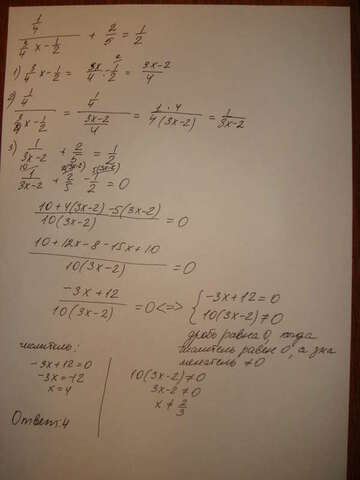 (1/4)/(3/4 x - 1/2) + 2/5 = 1/2
1) 3/4 x - 1/2 = 3x/4 - 1/2 = 3x-2/4
2) (1/4)/(3/4 x - 1/2) = (1/4)/((3x-2)/4) = 1·4/4(3x-2) = 1/3x-2
3) 1/3x-2 + 2/5 = 1/2
1/3x-2 + 2/5 - 1/2 = 0
10+4(3x-2)-5(3x-2)/10(3x-2) = 0
10+12x-8-15x+10/10(3x-2) = 0
-3x+12/10(3x-2) = 0 <=> { -3x+12=0
10(3x-2)≠0
дробь равна 0, когда
числитель равен 0, а зна
менатель ≠0
числитель:
-3x+12=0
-3x=-12
x=4
10(3x-2)≠0
3x-2≠0
x≠2/3
Ответ: 4